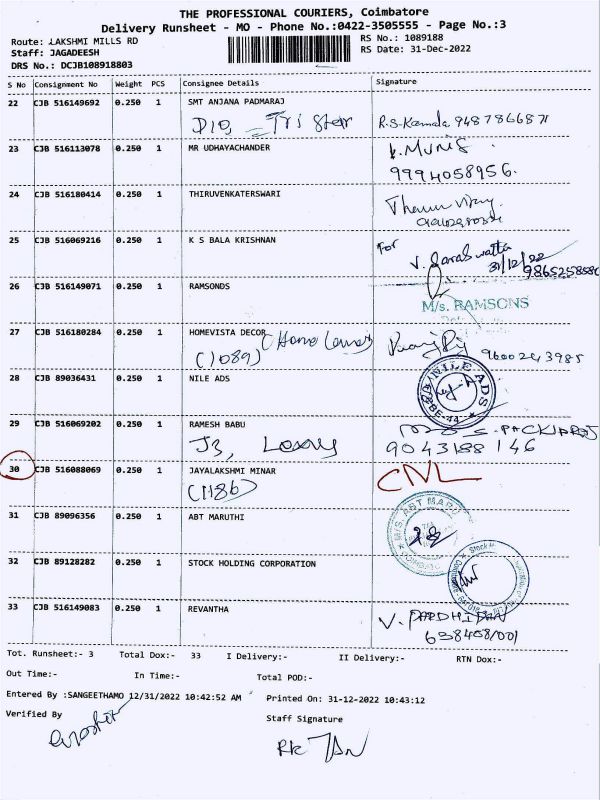 THE PROFESSIONAL COURIERS, Coimbatore
Delivery Runsheet - MO - Phone No.:0422-3505555 - Page No.:3
Route: LAKSHMI MILLS RD RS No.: 1089188
Staff: JAGADEESH RS Date: 31-Dec-2022
DRS No.: DCJB108918803
S No Consignment No Weight PCS Consignee Details Signature
22 CJB 516149692 0.250 1 SMT ANJANA PADMARAJ
Tri Star R.S-Kamala 9487866871
23 CJB 516113078 0.250 1 MR UDHAYACHANDER
9994058956.
24 CJB 516180414 0.250 1 THIRUVENKATERSWARI
25 CJB 516069216 0.250 1 K S BALA KRISHNAN For
31/12/22
26 CJB 516149071 0.250 1 RAMSONDS
M/s. RAMSONS
27 CJB 516180284 0.250 1 HOMEVISTA DECOR (Home
(1089) 9600243985
28 CJB 89036431 0.250 1 NILE ADS
NILE ADS
29 CJB 516069202 0.250 1 RAMESH BABU
J3, 9043188146
30 CJB 516088069 0.250 1 JAYALAKSHMI MINAR
(1186)
31 CJB 89096356 0.250 1 ABT MARUTHI
M/S. ABT MARU
32 CJB 89128282 0.250 1 STOCK HOLDING CORPORATION
33 CJB 516149083 0.250 1 REVANTHA
V.
Tot. Runsheet:- 3 Total Dox:- 33 I Delivery:- II Delivery:- RTN Dox:-
Out Time:- In Time:- Total POD:-
Entered By :SANGEETHAMO 12/31/2022 10:42:52 AM Printed On: 31-12-2022 10:43:12
Verified By Staff Signature